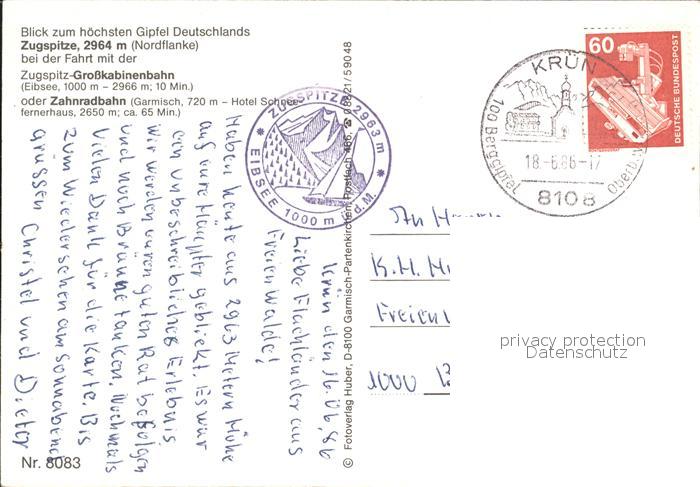 Blick zum höchsten Gipfel Deutschlands
Zugspitze, 2964 m (Nordflanke)
bei der Fahrt mit der
Zugspitz-Großkabinenbahn
(Eibsee, 1000 m – 2966 m; 10 Min.)
oder Zahnradbahn (Garmisch, 720 m – Hotel Schnee-
fernerhaus, 2650 m; ca. 65 Min.)
Krün den 16.06.86
Liebe Flachländer aus
Freienwalde!
Haben heute aus 2963 Metern Höhe
auf eure Häupter geblickt. Es war
ein unbeschreibliches Erlebnis
wir werden euren guten Rat befolgen
und noch Bräune tanken. Nochmals
vielen Dank für die Karte. Bis
zum Wiedersehen am Sonnabend
grüssen Christel und Dieter
Nr. 8083
ZUGSPITZE 2963 m
EIBSEE 1000 m ü.d.M.
© Fotoverlag Huber, D-8100 Garmisch-Partenkirchen, Postfach 466, 08821/59048
60
DEUTSCHE BUNDESPOST
KRÜN
100 Berggipfel
18.-6.86-17
8108
An
K.H.
Freien
1000
privacy protection
Datenschutz